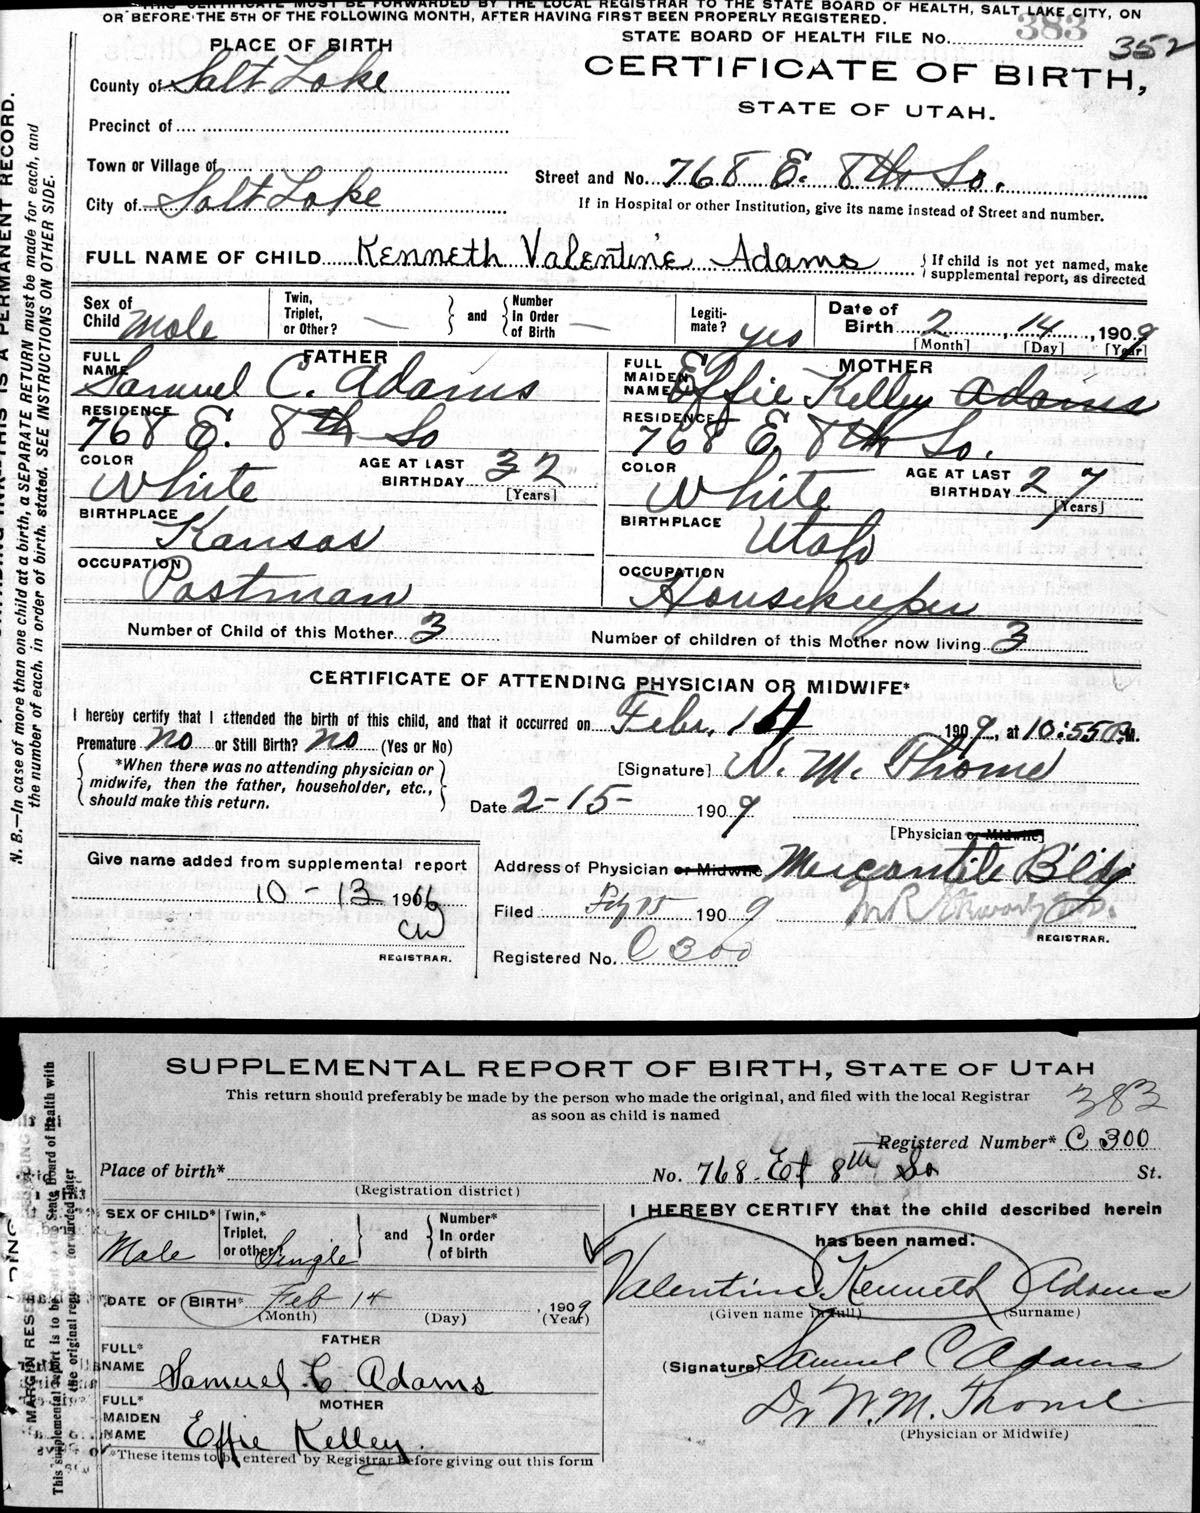 THIS CERTIFICATE MUST BE FORWARDED BY THE LOCAL REGISTRAR TO THE STATE BOARD OF HEALTH, SALT LAKE CITY, ON
OR BEFORE THE 5TH OF THE FOLLOWING MONTH, AFTER HAVING FIRST BEEN PROPERLY REGISTERED.
STATE BOARD OF HEALTH FILE No. 383
352
PLACE OF BIRTH
CERTIFICATE OF BIRTH,
STATE OF UTAH.
County of Salt Lake
Precinct of
Town or Village of
City of Salt Lake
Street and No. 768 E. 8th So.
If in Hospital or other Institution, give its name instead of Street and number.
FULL NAME OF CHILD Kenneth Valentine Adams
If child is not yet named, make
supplemental report, as directed
Sex of Child Male
Twin, Triplet, or Other? —
and
Number In Order of Birth —
Legiti-mate? yes
Date of Birth 2, 14, 1909
[Month] [Day] [Year]
FATHER
FULL NAME Samuel C. Adams
RESIDENCE 768 E. 8th So
COLOR White
AGE AT LAST BIRTHDAY 32 [Years]
BIRTHPLACE Kansas
OCCUPATION Postman
MOTHER
FULL MAIDEN NAME Effie Kelley Adams
RESIDENCE 768 E. 8th So.
COLOR White
AGE AT LAST BIRTHDAY 27 [Years]
BIRTHPLACE Utah
OCCUPATION Housekeeper
Number of Child of this Mother 3
Number of children of this Mother now living 3
CERTIFICATE OF ATTENDING PHYSICIAN OR MIDWIFE*
I hereby certify that I attended the birth of this child, and that it occurred on Febr. 14 1909, at 10:55 P.M.
Premature no or Still Birth? no (Yes or No)
*When there was no attending physician or
midwife, then the father, householder, etc.,
should make this return.
[Signature] W. M. Thome
Date 2-15- 1909
[Physician or Midwife]
Give name added from supplemental report
10-13 1966
CW
REGISTRAR.
Address of Physician or Midwife Mercantile Bldg
Filed 15 1909
REGISTRAR.
Registered No. C 300
N. B.—In case of more than one child at a birth, a SEPARATE RETURN must be made for each, and
the number of each, in order of birth, stated. SEE INSTRUCTIONS ON OTHER SIDE.
INK—THIS IS A PERMANENT RECORD.
SUPPLEMENTAL REPORT OF BIRTH, STATE OF UTAH
This return should preferably be made by the person who made the original, and filed with the local Registrar
as soon as child is named
383
Registered Number* C 300
Place of birth* No. 768 Est 8th So St.
(Registration district)
SEX OF CHILD* Male
Twin,* Triplet, or other Single
and
Number* In order of birth
DATE OF BIRTH* Feb 14, 1909
(Month) (Day) (Year)
FATHER
FULL* NAME Samuel C. Adams
MOTHER
FULL* MAIDEN NAME Effie Kelley.
*These items to be entered by Registrar before giving out this form
I HEREBY CERTIFY that the child described herein
has been named:
Valentine Kenneth Adams
(Given name in full) (Surname)
(Signature Samuel C Adams
Dr W. M. Thome
(Physician or Midwife)
This supplemental report is to be sent to State Board of Health with
the original report or forwarded later